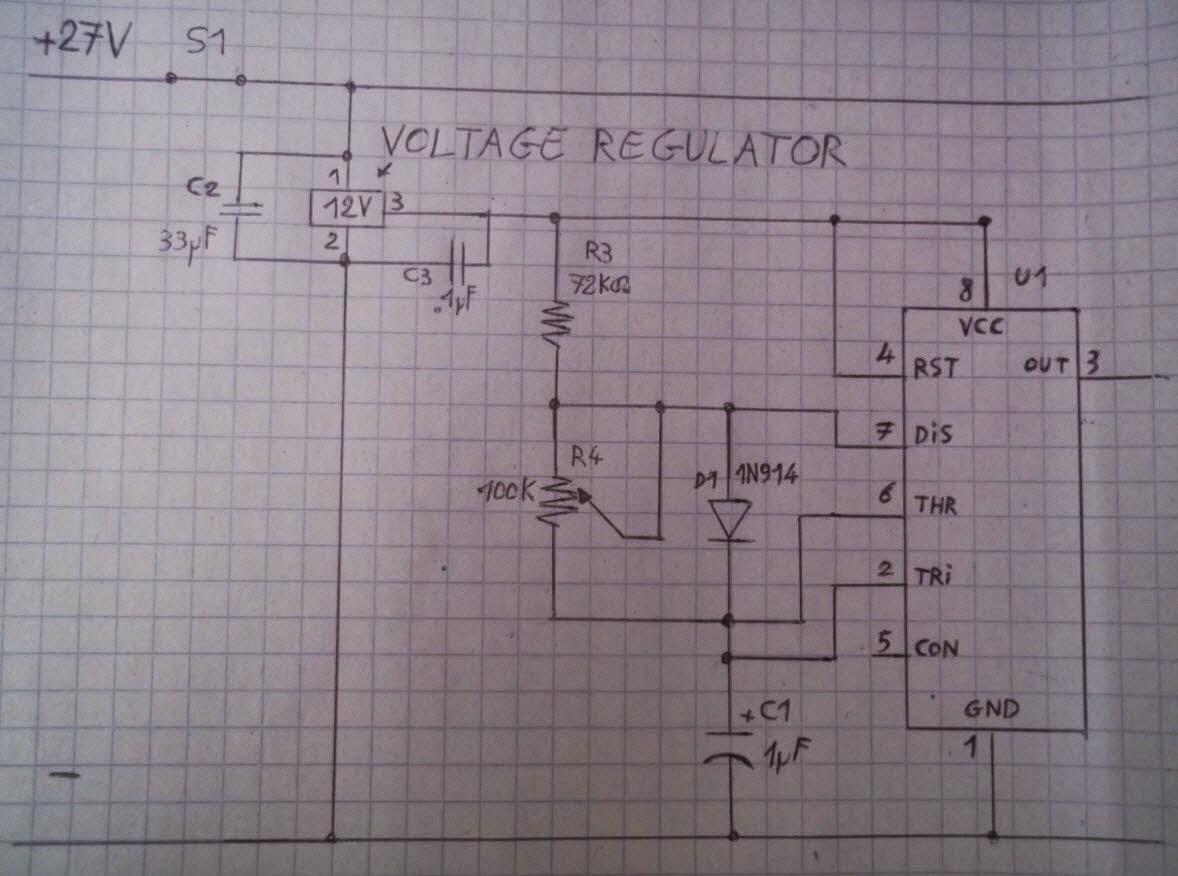 +27V S1
VOLTAGE REGULATOR
C2
33µF
1
12V
3
2
C3
.1µF
R3
72KΩ
R4
100K
D1 1N914
U1
8
VCC
4 RST
OUT 3
7 DiS
6 THR
2 TRi
5 CON
GND
1
+C1
1µF
-